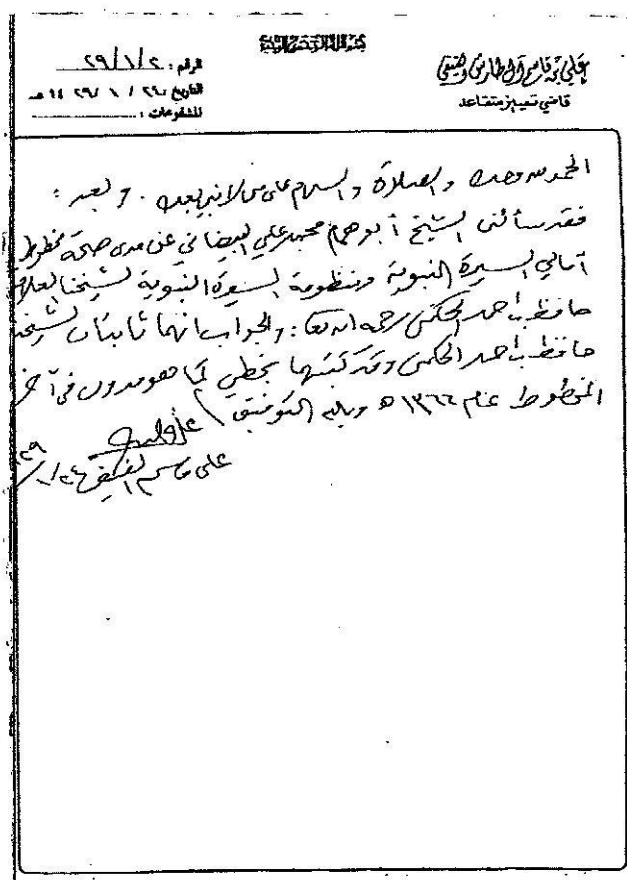 بسم الله الرحمن الرحيم
علي بن قاسم آل طارش الفيفي
قاضي تمييز متقاعد
الرقم : ٢/١/٢٩
التاريخ ٢٤ / ١ / ٢٩ ١٤ هـ
المشفوعات :
الحمد لله وحده والصلاة والسلام على من لا نبي بعده . وبعد :
فقد سألني الشيخ أبو همام محمد علي البيضاني عن مدى صحة مخطوط
أمالي السيرة النبوية ومنظومة السيرة النبوية لشيخنا العلا
حافظ بن أحمد الحكمي رحمه الله تعا : والجواب انهما ثابتتان لشيخنا
حافظ بن أحمد الحكمي وقد كتبتهما بخطي كما هو مدون في آخر
المخطوط عام ١٣٦٦ هـ وبالله التوفيق
علي قاسم الفيفي ٢٤/١/٢٩